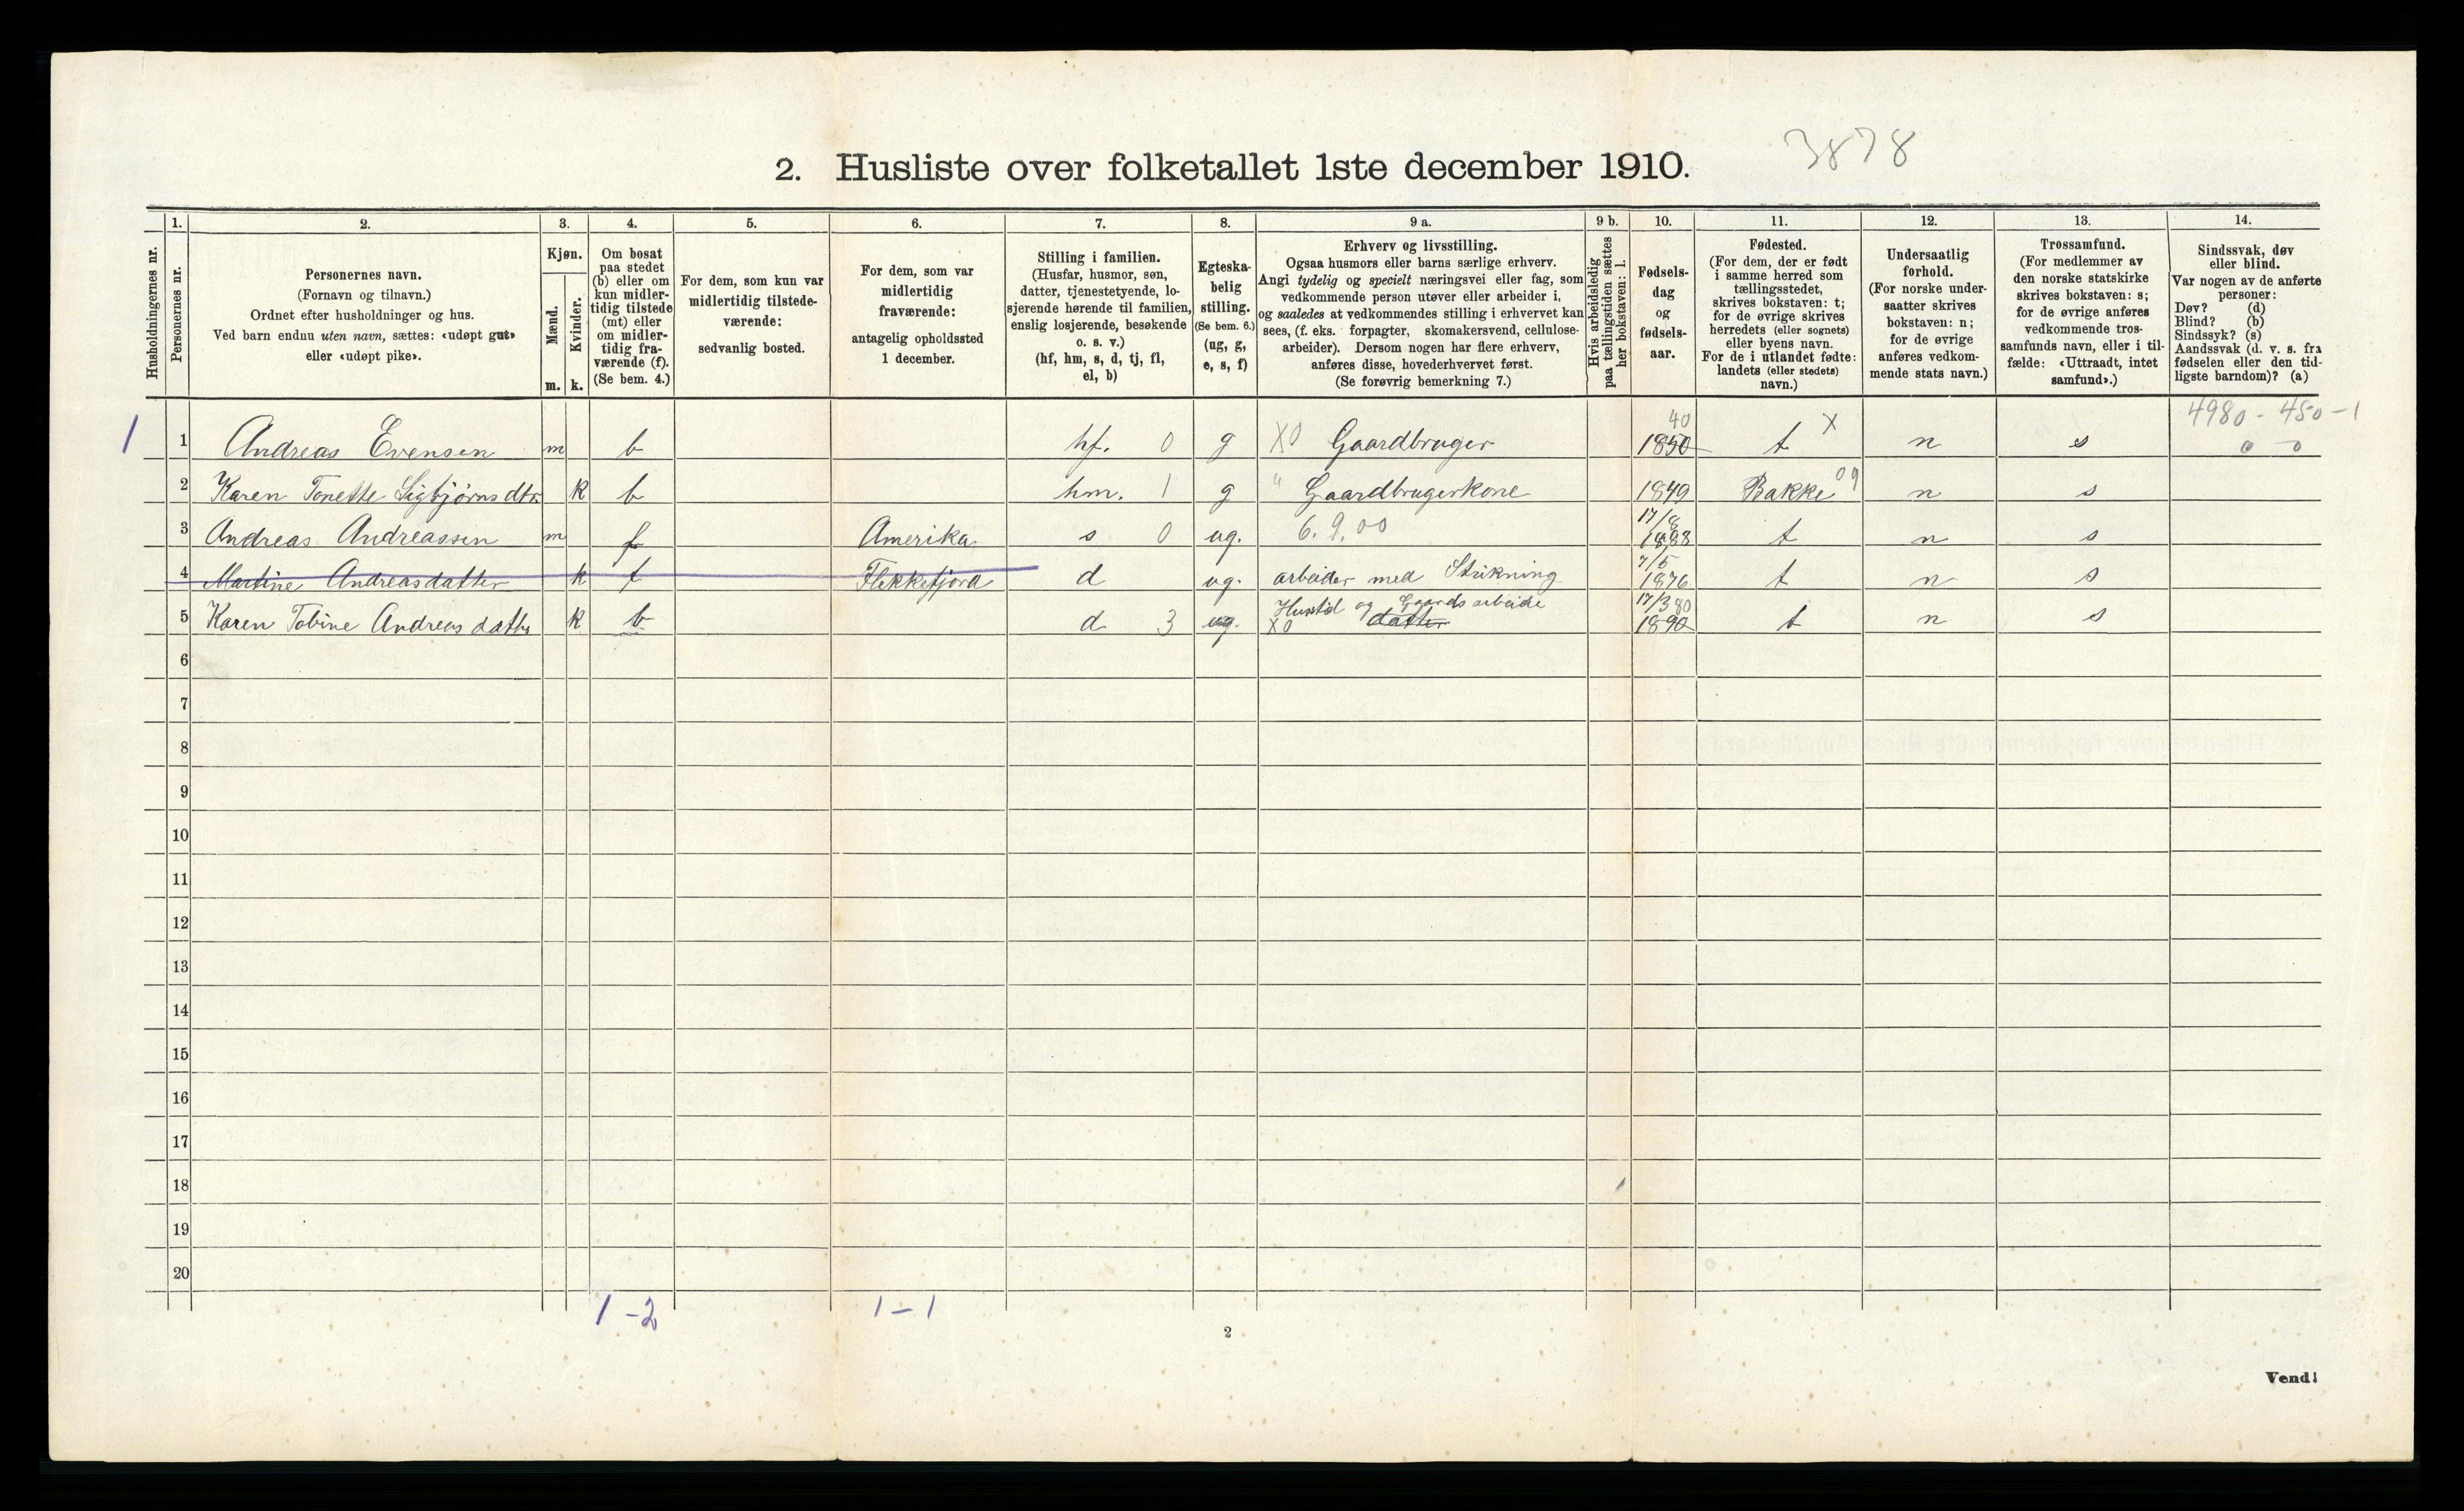 2. Husliste over folketallet 1ste december 1910.
3878
Husholdningernes nr.
1.
Personernes nr.
2.
Personernes navn.
(Fornavn og tilnavn.)
Ordnet efter husholdninger og hus.
Ved barn endnu uten navn, sættes: «udøpt gut»
eller «udøpt pike».
3.
Kjøn.
Mænd.
Kvinder.
m.
k.
4.
Om bosat
paa stedet
(b) eller om
kun midler-
tidig tilstede
(mt) eller
om midler-
tidig fra-
værende (f).
(Se bem. 4.)
5.
For dem, som kun var
midlertidig tilstede-
værende:
sedvanlig bosted.
6.
For dem, som var
midlertidig
fraværende:
antagelig opholdssted
1 december.
7.
Stilling i familien.
(Husfar, husmor, søn,
datter, tjenestetyende, lo-
sjerende hørende til familien,
enslig losjerende, besøkende
o. s. v.)
(hf, hm, s, d, tj, fl,
el, b)
8.
Egteska-
belig
stilling.
(Se bem. 6.)
(ug, g,
e, s, f)
9 a.
Erhverv og livsstilling.
Ogsaa husmors eller barns særlige erhverv.
Angi tydelig og specielt næringsvei eller fag, som
vedkommende person utøver eller arbeider i,
og saaledes at vedkommendes stilling i erhvervet kan
sees, (f. eks. forpagter, skomakersvend, cellulose-
arbeider). Dersom nogen har flere erhverv,
anføres disse, hovederhvervet først.
(Se forøvrig bemerkning 7.)
9 b.
Hvis arbeidsledig
paa tællingstiden sættes
her bokstaven: l.
10.
Fødsels-
dag
og
fødsels-
aar.
11.
Fødested.
(For dem, der er født
i samme herred som
tællingsstedet,
skrives bokstaven: t;
for de øvrige skrives
herredets (eller sognets)
eller byens navn.
For de i utlandet fødte:
landets (eller stedets)
navn.)
12.
Undersaatlig
forhold.
(For norske under-
saatter skrives
bokstaven: n;
for de øvrige
anføres vedkom-
mende stats navn.)
13.
Trossamfund.
(For medlemmer av
den norske statskirke
skrives bokstaven: s;
for de øvrige anføres
vedkommende tros-
samfunds navn, eller i til-
fælde: «Uttraadt, intet
samfund».)
14.
Sindssvak, døv
eller blind.
Var nogen av de anførte
personer:
Døv? (d)
Blind? (b)
Sindssyk? (s)
Aandssvak (d. v. s. fra
fødselen eller den tid-
ligste barndom)? (a)
4980 - 450 - 1
1 1 Andreas Evensen m b hf. 0 g X0 Gaardbruger 40 1850 t X n s 0 0
2 Karen Tonette Sigbjørnsdtr k b hm. 1 g " Gaardbrugerkone 1849 Bakke 09 n s
3 Andreas Andreassen m f Amerika s 0 ug. 6.9.00 17/8 1888 t n s
4 Martine Andreasdatter k f Flekkefjord d ug. arbeider med Strikning 7/5 1876 t n s
5 Karen Tobine Andreasdatter k b d 3 ug. Hustel og Gaards arbeide X0 datter 17/3 80 1890 t n s
6
7
8
9
10
11
12
13
14
15
16
17
18
19
20
1 - 2
1 - 1
2
Vend!